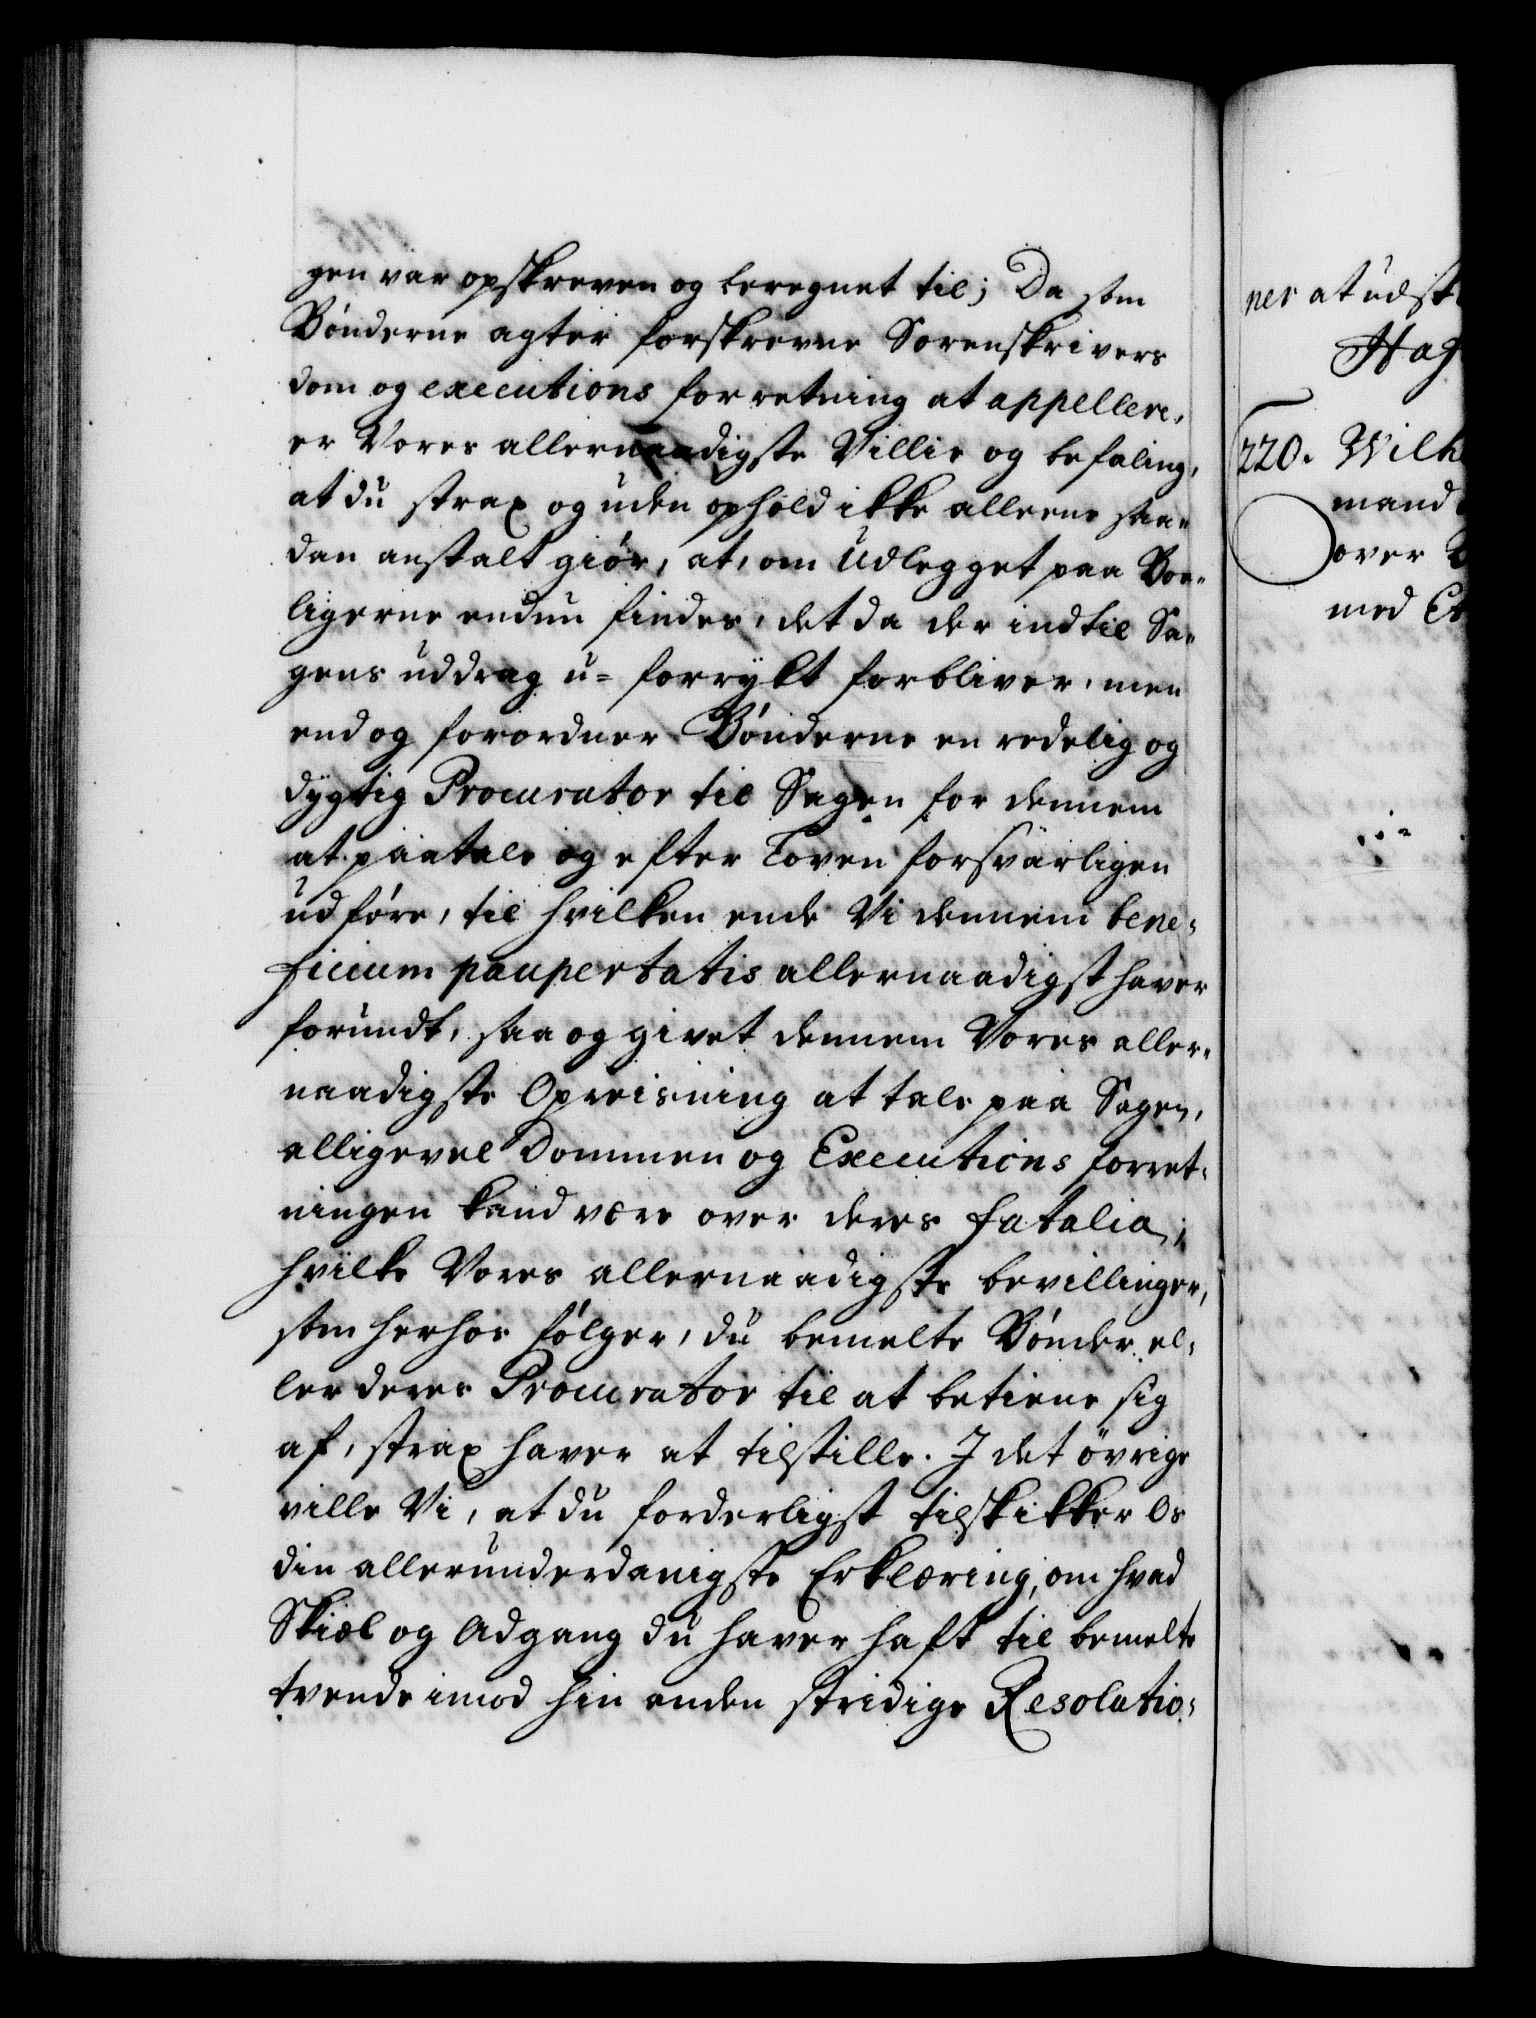 gen var opskreven og beregnet til; Da som
Bönderne agter forskrevne Sorenskrivers
dom og executions forretning at appellere,
er Vores allernaadigste Villie og befaling,
at du strax og uden ophold ikke alleene saa-
dan anstalt giör, at, om Udlegget paa Boe-
ligerne endnu findes, det da der indtil Sa-
gens uddrag u-forrykt forbliver, men
end og forordner Bönderne en redelig og
dygtig Procurator til Sagen for dennem
at paatale og efter Loven forsvarligen
udföre, til hvilken ende Vi dennem bene-
ficium paupertatis allernaadigst haver
forundt, saa og givet dennem Vores aller-
naadigste Opreisning at tale paa Sagen,
alligevel Dommen og Executions forret-
ningen kand være over deres fatalia;
hvilke Vores allernaadigste bevillinger,
som herhos fölger, du bemelte Bönder el-
ler deres Procurator til at betiene sig
af, strax haver at tilstille. I det övrige
ville Vi, at du forderligst tilskikker Os
din allerunderdanigste Erklæring, om hvad
Skiæl og Adgang du haver haft til bemelte
tvende imod hin anden stridige Resolutio-
ner at udst
Hag
220. Wilh
mand
over
med